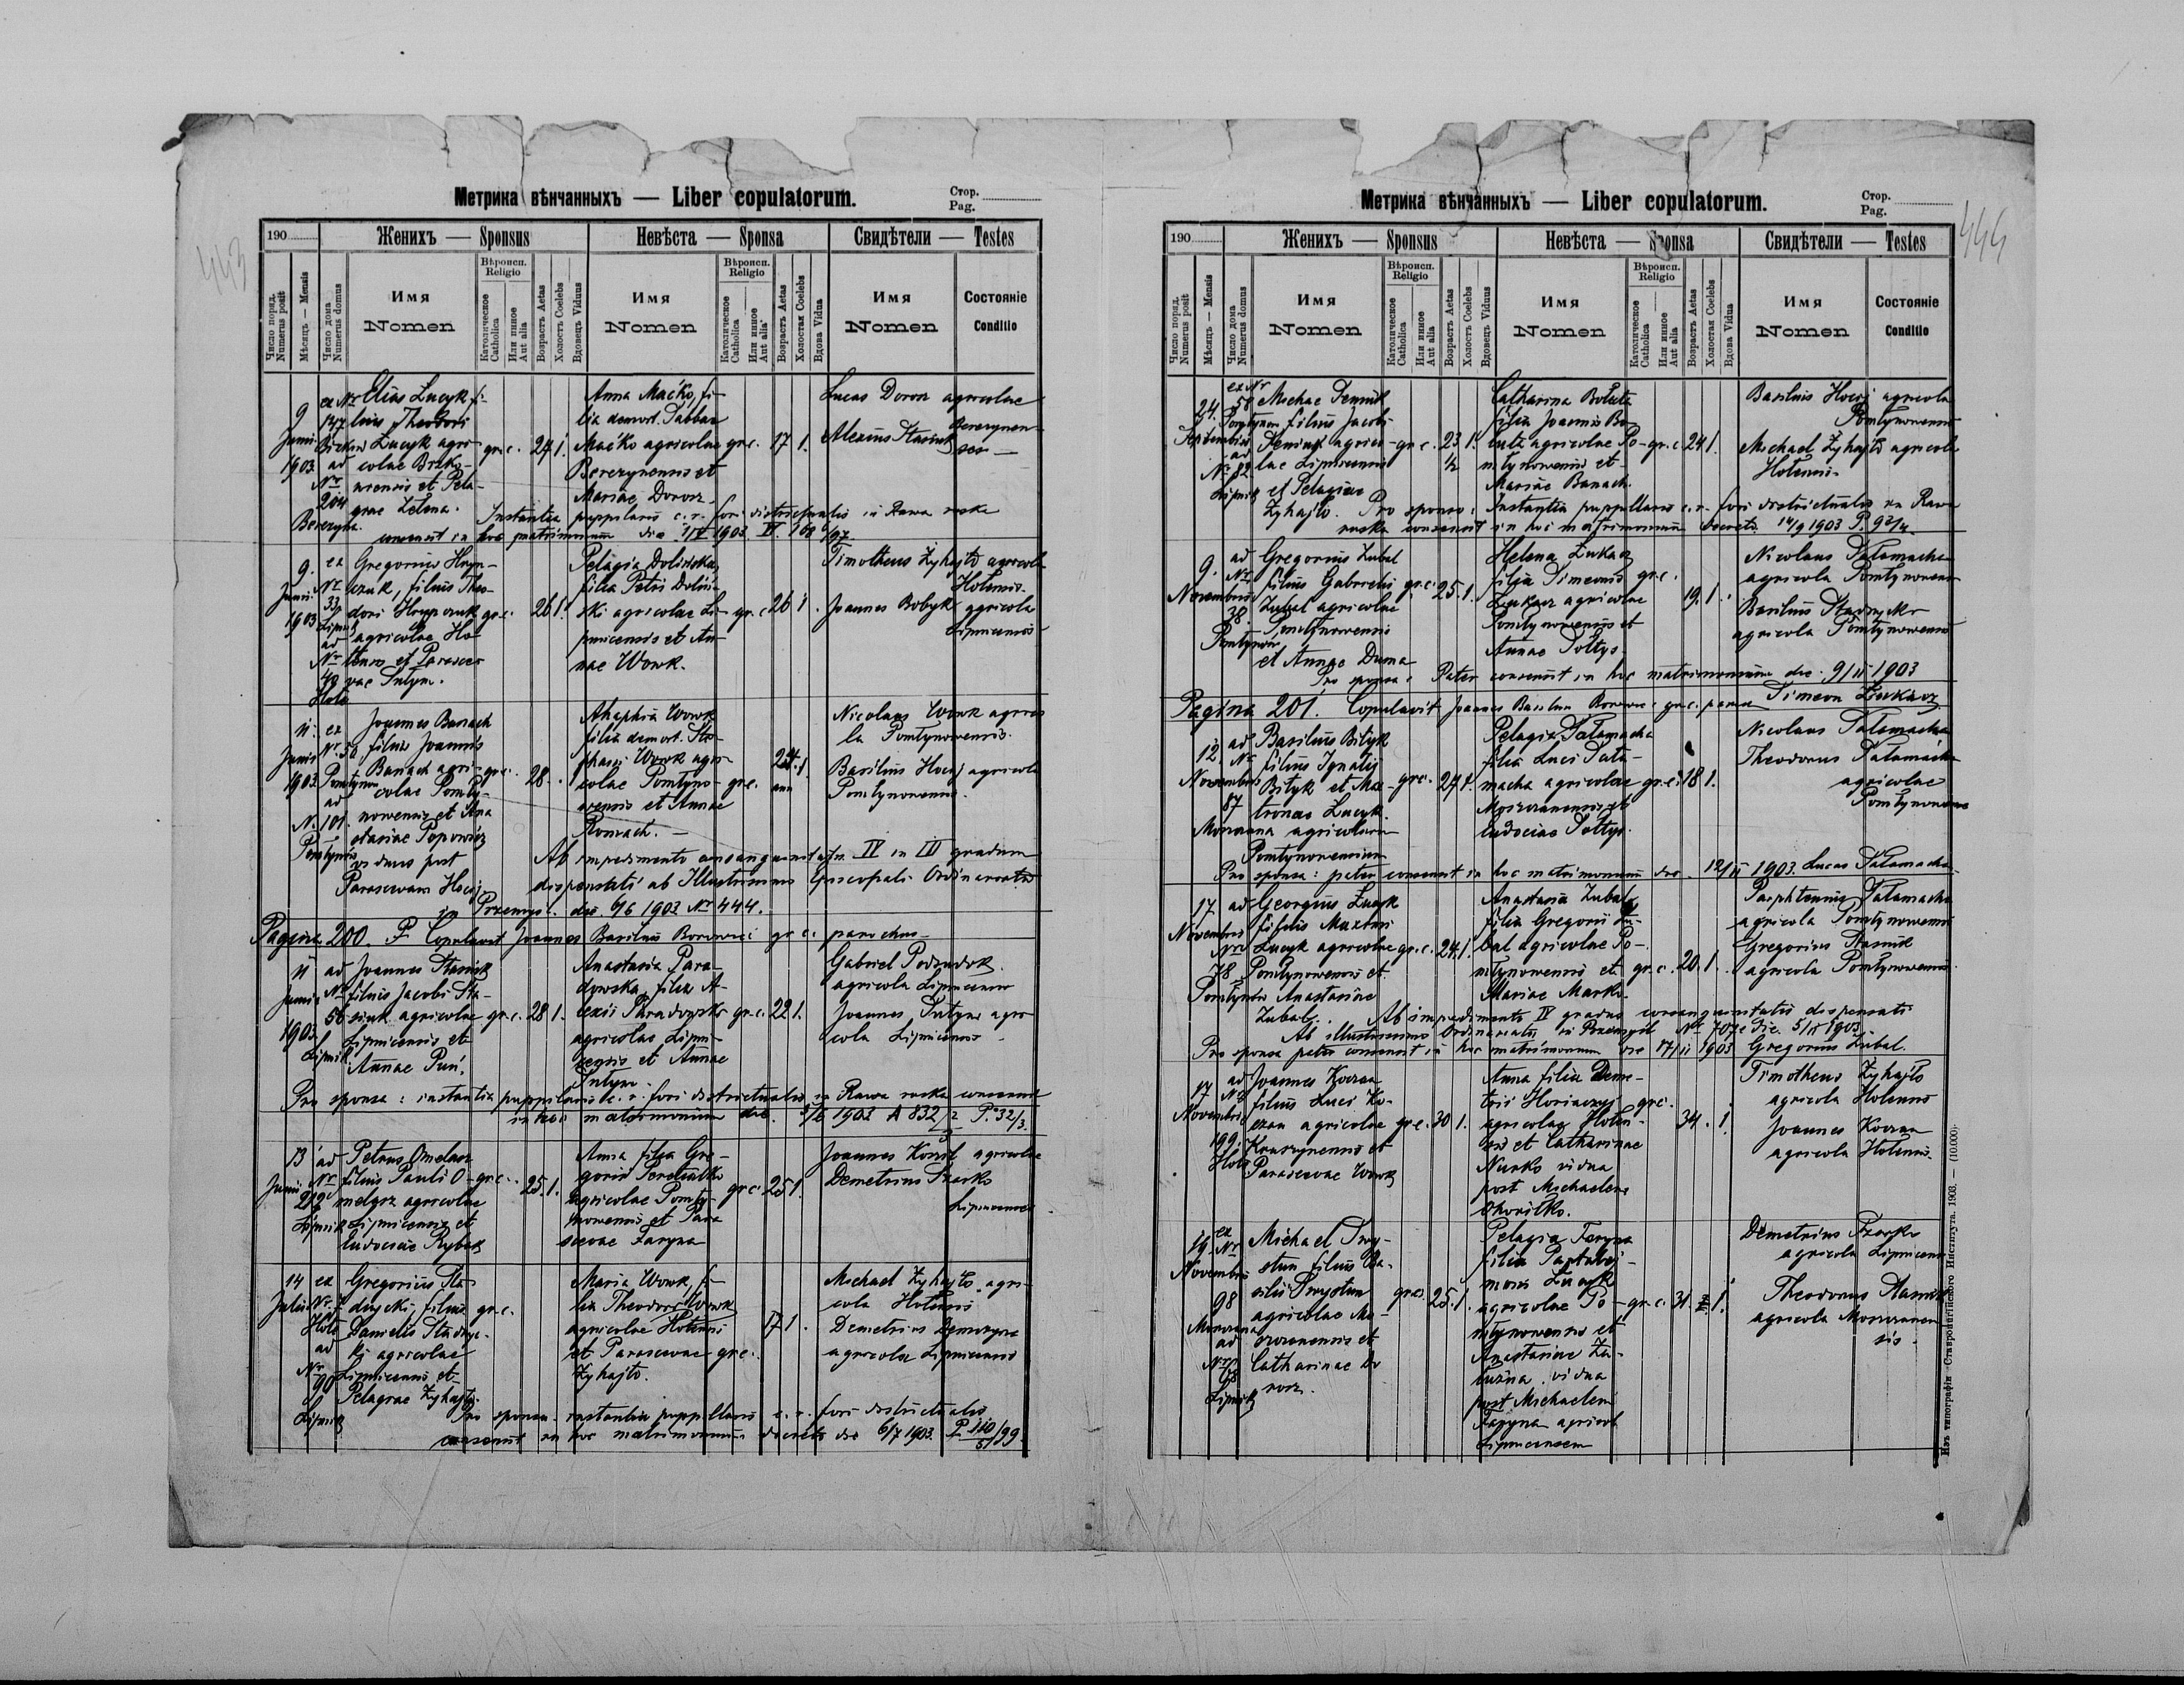 443
Метрика вѣнчанныхъ — Liber copulatorum.
Стор.
Pag.
190
Женихъ — Sponsus
Невѣста — Sponsa
Свидѣтели — Testes
Число поряд.
Numerus posit
Мѣсяцъ — Mensis
Число дома
Numerus domus
Имя
Nomen
Вѣроисп.
Religio
Католическое
Catholica
Или инное
Aut alia
Возрастъ Aetas
Холостъ Coelebs
Вдовецъ Viduus
Имя
Nomen
Вѣроисп.
Religio
Католическое
Catholica
Или инное
Aut alia
Возрастъ Aetas
Холостая Coelebs
Вдова Vidua
Имя
Nomen
Состояніе
Conditio
9
Junii
1903
ex Nr
147
ad
Nr
204
Berezyna
Elias Lucyk fi-
lius Theodori
Lucyk agri-
colae
et Pela-
giae Zelena.
gr. c. 24 1.
Anna Maćko, fi-
lia demort. Sabbae
Maćko agricolae
Berezynensis et
Mariae Dorosz
gr. c. 17 1.
Lucas Dorosz agricolae
Alexius Stasiuk
Instantia puppilaris c. r. fori districtualis in Rawa ruska
consensit in hoc matrimonium die
9.
Junii
1903
ex
Nr
33
Lipnik
ad
Nr
49
Hola
Gregorius Hryn-
czuk, filius Theo-
dori Hrynczuk
agricolae Ho-
lensis et Parasce-
vae Intyn.
gr. c. 26 1.
Pelagia Dolińska,
filia Petri Doliń-
ski agricolae Li-
pnicensis et An-
nae Wowk.
gr. c. 26 1.
Timotheus Zyhajlo agricola
Holensis.
Joannes Bobyk agricola
Lipnicensis
11.
Junii
1903
ex
Nr 52
ad
N. 101.
Joannes Banach
filius Joannis
Banach agri-
colae Pomty-
nowensis et Ana
stasiae Popowicz
viduus post
Parascevam Hocij
gr. c. 28.
Ahaphia Wowk
filia demort. Ste-
phani Wowk agri-
colae Pomtyno-
wensis et Annae
Romach. —
gr. c. 24. 1
Nicolaus Wowk agrico
la Pomtynowensis.
Basilius Hocij agricola
Pomtynowensis.
Ab impedimento consanguinitatis IV in III gradum
dispensati ab Illustrissimo Episcopali Ordinariatu
in Przemyśl. die. 9/6 1903 Nr 444.
Pagina 200. Copulavit Joannes Basilius Borowiec gr. c. parochus —
11
Junii
1903
ad
Nr
56
Lipnik
Joannes Stasiuk
filius Jacobi Sta-
siuk agricolae
Lipnicensis et
Annae Puń.
gr. c. 28 1.
Anastasia Para-
dowska, filia A-
lexii Paradowski
agricolae Lipni-
censis et Annae
Intyn.
gr. c. 22 1.
Gabriel Podsudok
agricola Lipnicensis
Joannes Intyn agri-
cola Lipnicensis.
Pro sponsa: instantia puppilaris c. r. fori districtualis in Rawa ruska consensit
in hoc matrimonium die. 1903 A 832/2 P. 32/3.
13
Junii
ad
Nr
212
Lipnik
Petrus Omelacz
filius Pauli O-
melacz agricolae
Lipnicensis et
Eudociae Rybak
gr. c. 25. 1.
Anna filia Gre-
gorii
agricolae Pomty-
nowensis et Para
scevae Faryna
gr. c. 25 1.
Joannes agricolae
Demetrius Szarko
Lipnicensis
14
Julii
ex
Nr.
Hola
ad
Nr
90
Lipnik
Gregorius Sta-
dnycki, filius
Danielis Stadnyc-
ki agricolae
Lipnicensis et
Pelagiae Zyhajlo.
gr. c.
Maria Wowk, fi-
lia Theodori Wowk
agricolae Holensis
et Parascevae
Zyhajlo.
gr. c. 17 1.
Michael Zyhajlo, agri-
cola Holensis
Demetrius
agricola Lipnicensis
Pro sponsa instantia puppillaris c. r. fori districtualis
consensit in hoc matrimonium decreto die 6/7 1903. P 110/5/99.
444
Метрика вѣнчанныхъ — Liber copulatorum.
Стор.
Pag.
190
Женихъ — Sponsus
Невѣста — Sponsa
Свидѣтели — Testes
Число поряд.
Numerus posit
Мѣсяцъ — Mensis
Число дома
Numerus domus
Имя
Nomen
Вѣроисп.
Religio
Католическое
Catholica
Или инное
Aut alia
Возрастъ Aetas
Холостъ Coelebs
Вдовецъ Viduus
Имя
Nomen
Вѣроисп.
Religio
Католическое
Catholica
Или инное
Aut alia
Возрастъ Aetas
Холостая Coelebs
Вдова Vidua
Имя
Nomen
Состояніе
Conditio
24.
Septembris
ex Nr
58
ad
Nr 82
Lipnik
filius Jacobi
agrico-
lae Lipnicensis
et Pelagiae
Zyhajlo.
gr. c. 23 1/2 1.
Catharina Boluta
filia Joannis Bo-
luta agricolae Po-
mtynowensis et
Mariae Banach.
gr. c. 24 1.
Basilius Hocij agricola
Pomtynowensis
Michael Zyhajlo agricola
Holensis.
Pro sponso: Instantia puppillaris c. r. fori districtualis in Rawa
ruska consensit in hoc matrimonium decreto 14/9 1903 P. 92/4
9.
Novembris
ad
Nr
38.
Gregorius Zubal
filius Gabrielis
Zubal agricolae
Pomtynowensis
et Annae Duma
gr. c. 25. 1.
Helena Lukacz
filia Simeonis
Lukacz agricolae
Pomtynowensis et
Annae Soltys.
gr. c. 19. 1.
Nicolaus Talamacha
agricola Pomtynowensis
Basilius Stadnycki
agricola Pomtynowensis
Pro sponsa: Pater consensit in hoc matrimonium die. 9/11 1903
Simeon Lukacz
Pagina 201. Copulavit Joannes Basilius Borowiec gr. c. paroch
12.
Novembris
ad
Nr
87
Moszczana
Basilius Bilyk
filius Ignatii
Bilyk et Ma-
tronae Lucyk.
agricolarum
Pomtynowensium
gr. c. 24 1.
Pelagia Talamacha
filia Luci Tala-
macha agricolae
Moszczanensis et
Eudociae Soltys.
gr. c. 18 1.
Nicolaus Talamacha
Theodorus Talamacha
agricolae
Pomtynowens
Pro sponsa: pater consensit in hoc matrimonium die. 12/11 1903. Lucas Talamacha.
17
Novembris
ad
Nr
78
Georgius Lucyk
filius Maximi
Lucyk agricolae
Pomtynowensis et
Anastasiae
Zubal.
gr. c. 24. 1.
Anastasia Zubal
filia Gregorii Zu-
bal agricolae Po-
mtynowensis et
Mariae Marko.
gr. c. 20. 1.
Parphtenius Talamacha
agricola Pomtynowensis
Gregorius Stasiuk
agricola Pomtynowensis.
Ab impedimento IV gradus consanguinitatis dispensati
Ab illustrissimo Ordinariatu in Przemyśl Nr 707 Die. 5/11 1903.
Pro sponsa pater consensit in hoc matrimonium die 17/11 1903 Gregorius Zubal.
17
Novembris
ad
Nr
199.
Hola
Joannes Korzan
filius Luci Ko-
rzan agricolae
et
Parascevae Wowk
gr. c. 30 1.
Anna filia Deme-
trii
agricolae Holen-
sis et Catharinae
Nurko vidua
post Michaelem
Chorilko.
gr. c. 34. 1.
Timotheus Zyhajlo
agricola Holensis
Joannes Korzan
agricola Holensis.
19
Novembris
ex
Nr
98
Moszczana
ad
Nr
68
Lipnik
Michael
filius Ba-
silii
agricolae Mo-
szczanensis et
Catharinae Do
rosz.
gr. c. 25. 1.
Pelagia Faryna
filia
Lucyk
agricolae Po-
mtynowensis et
Anastasiae Za-
luźna. vidua
post Michaelem
Faryna agricol
Lipnicensem
gr. c. 31. 1.
Demetrius Szarko
agricola Lipnicensis
Theodorus Stasiuk
agricola Moszczanen
sis.
Изъ типографіи Ставропигійского Института. 1903. — (10.000).